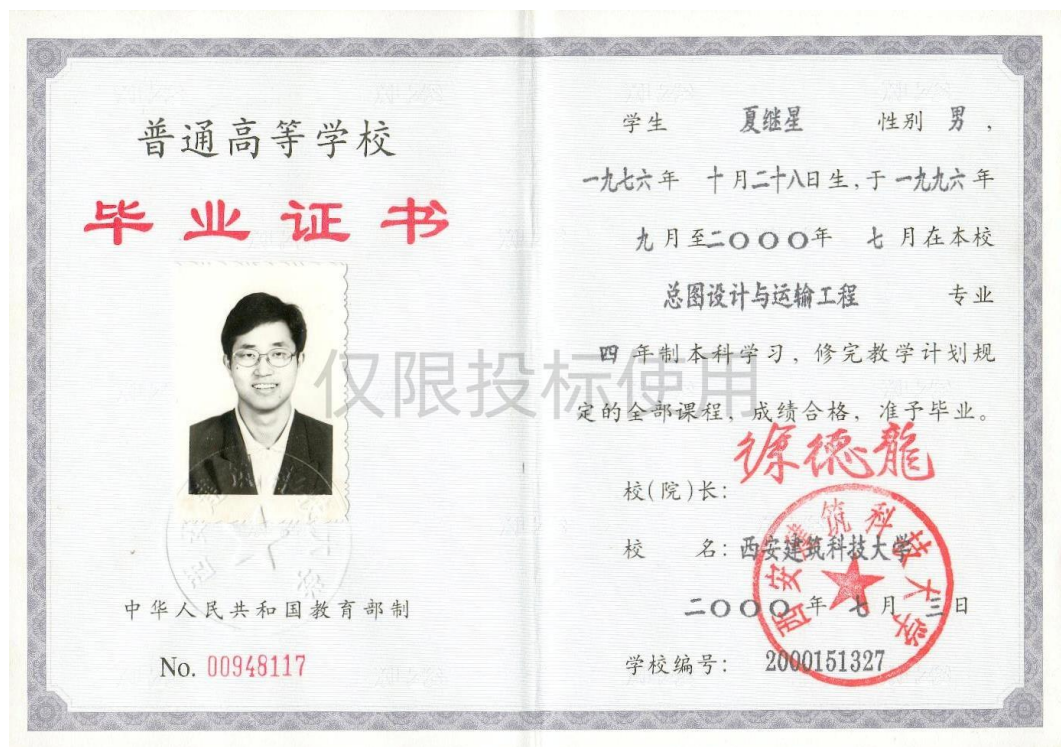 普通高等学校
毕业证书
中华人民共和国教育部制
No. 00948117
学生 夏继星 性别 男，
一九七六年 十月二十八日生，于一九九六年
九月至二〇〇〇年 七月在本校
总图设计与运输工程 专业
四年制本科学习，修完教学计划规
定的全部课程，成绩合格，准予毕业。
校(院)长：徐德龍
校 名：西安建筑科技大学
二〇〇〇年七月三日
学校编号：2000151327
西安建筑科技大学
仅限投标使用